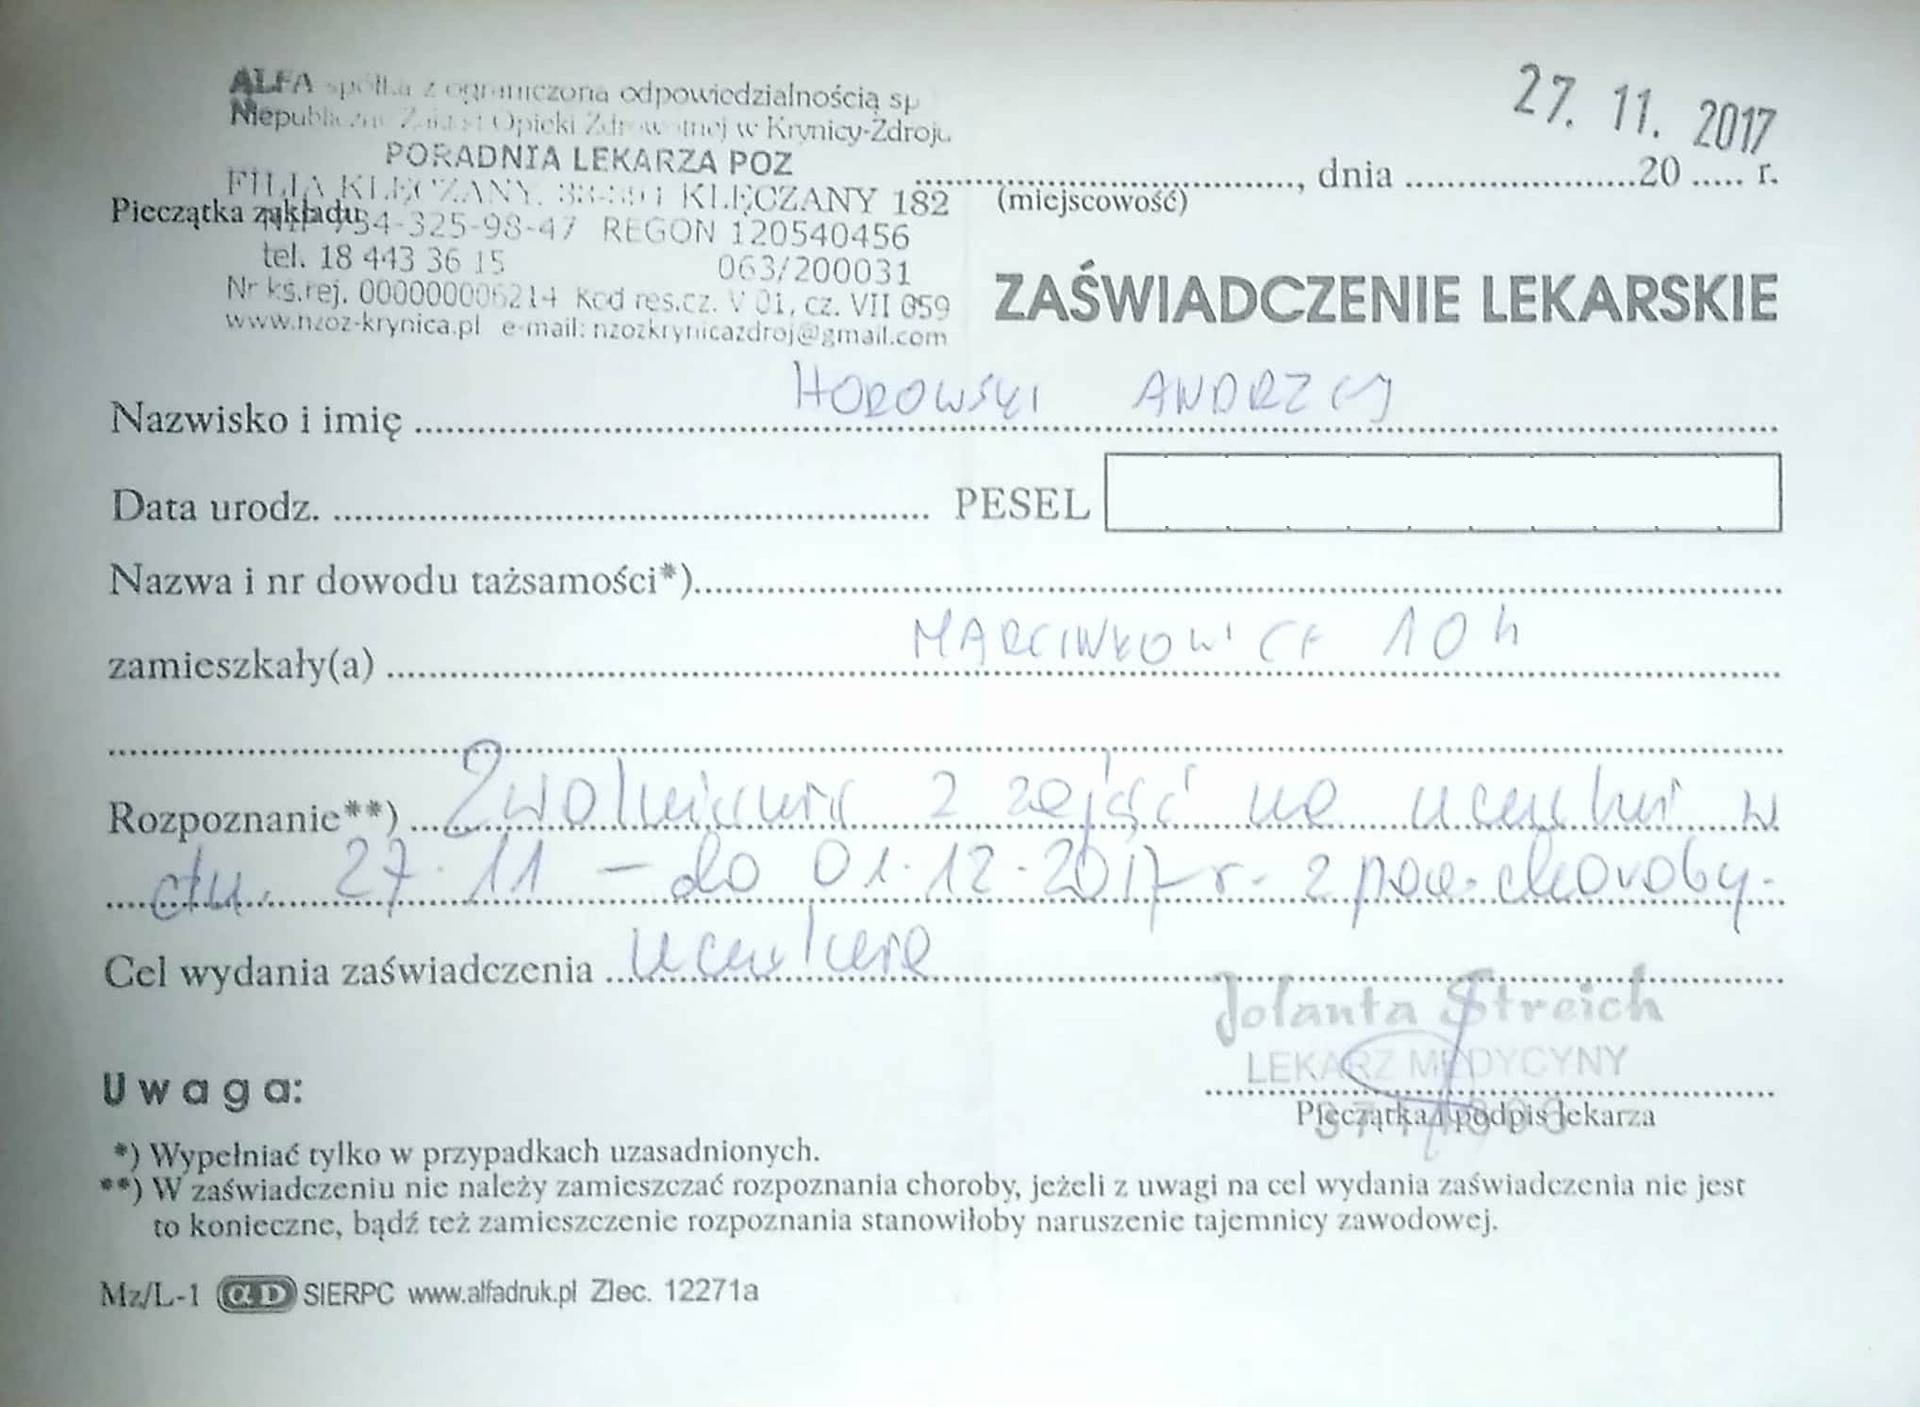 ALFA spółka z ograniczoną odpowiedzialnością sp
Niepubliczny Zakład Opieki Zdrowotnej w Krynicy-Zdroju
PORADNIA LEKARZA POZ
FILIA KLĘCZANY, 33-394 KLĘCZANY 182
NIP 734-325-98-47 REGON 120540456
tel. 18 443 36 15 063/200031
Nr ks.rej. 000000006214 Kod res.cz. V 01, cz. VII 059
www.nzoz-krynica.pl e-mail: nzozkrynicazdroj@gmail.com
Pieczątka zakładu
27. 11. 2017
, dnia 20 r.
(miejscowość)
ZAŚWIADCZENIE LEKARSKIE
Nazwisko i imię HODOWSKI ANDRZEJ
Data urodz. PESEL
Nazwa i nr dowodu tażsamości*)
zamieszkały(a) MARCINKOWICE 104
Rozpoznanie**) Zwolnienie z zajęć na uczelni w
dn. 27.11 - do 01.12.2017 r. z pow. choroby.
Cel wydania zaświadczenia uczelnia
Jolanta Streich
LEKARZ MEDYCYNY
Pieczątka i podpis lekarza
Uwaga:
*) Wypełniać tylko w przypadkach uzasadnionych.
**) W zaświadczeniu nie należy zamieszczać rozpoznania choroby, jeżeli z uwagi na cel wydania zaświadczenia nie jest
to konieczne, bądź też zamieszczenie rozpoznania stanowiłoby naruszenie tajemnicy zawodowej.
Mz/L-1 SIERPC www.alfadruk.pl Zlec. 12271a